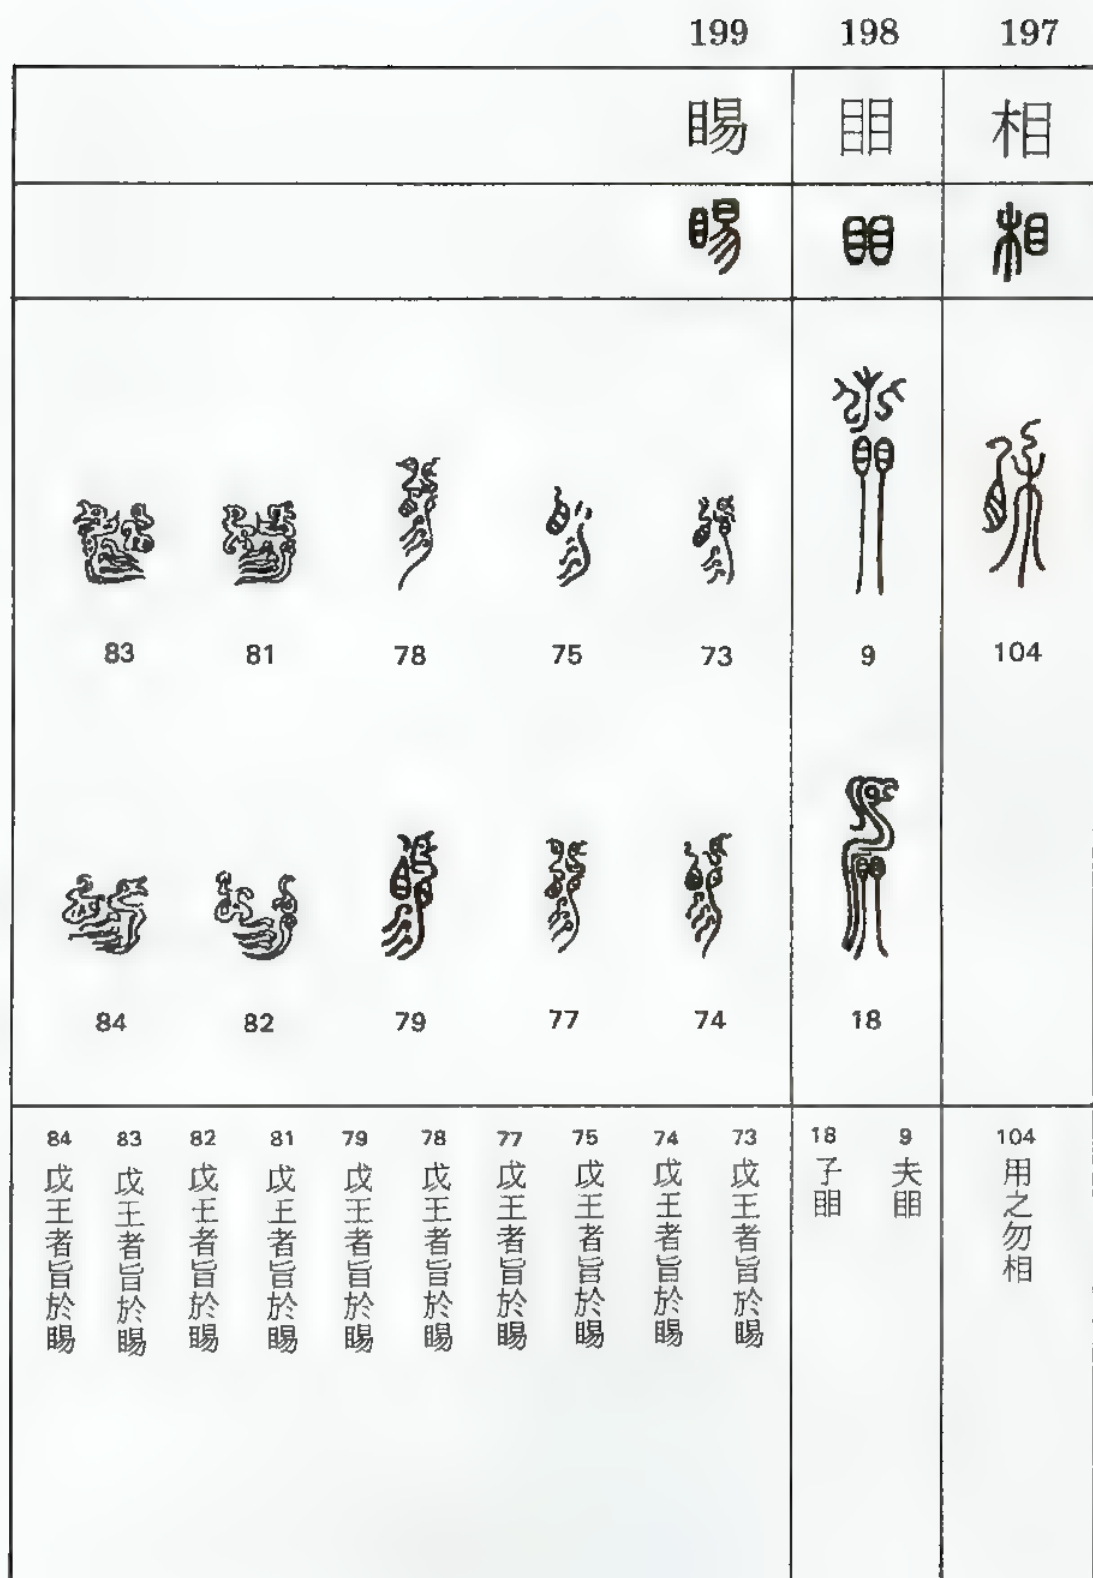 197
相
相
104
104
用之勿相
198
䀠
䀠
9
18
9
夫䀠
18
子䀠
199
睗
睗
73
75
78
81
83
74
77
79
82
84
73
戉王者旨於睗
74
戉王者旨於睗
75
戉王者旨於睗
77
戉王者旨於睗
78
戉王者旨於睗
79
戉王者旨於睗
81
戉王者旨於睗
82
戉王者旨於睗
83
戉王者旨於睗
84
戉王者旨於睗